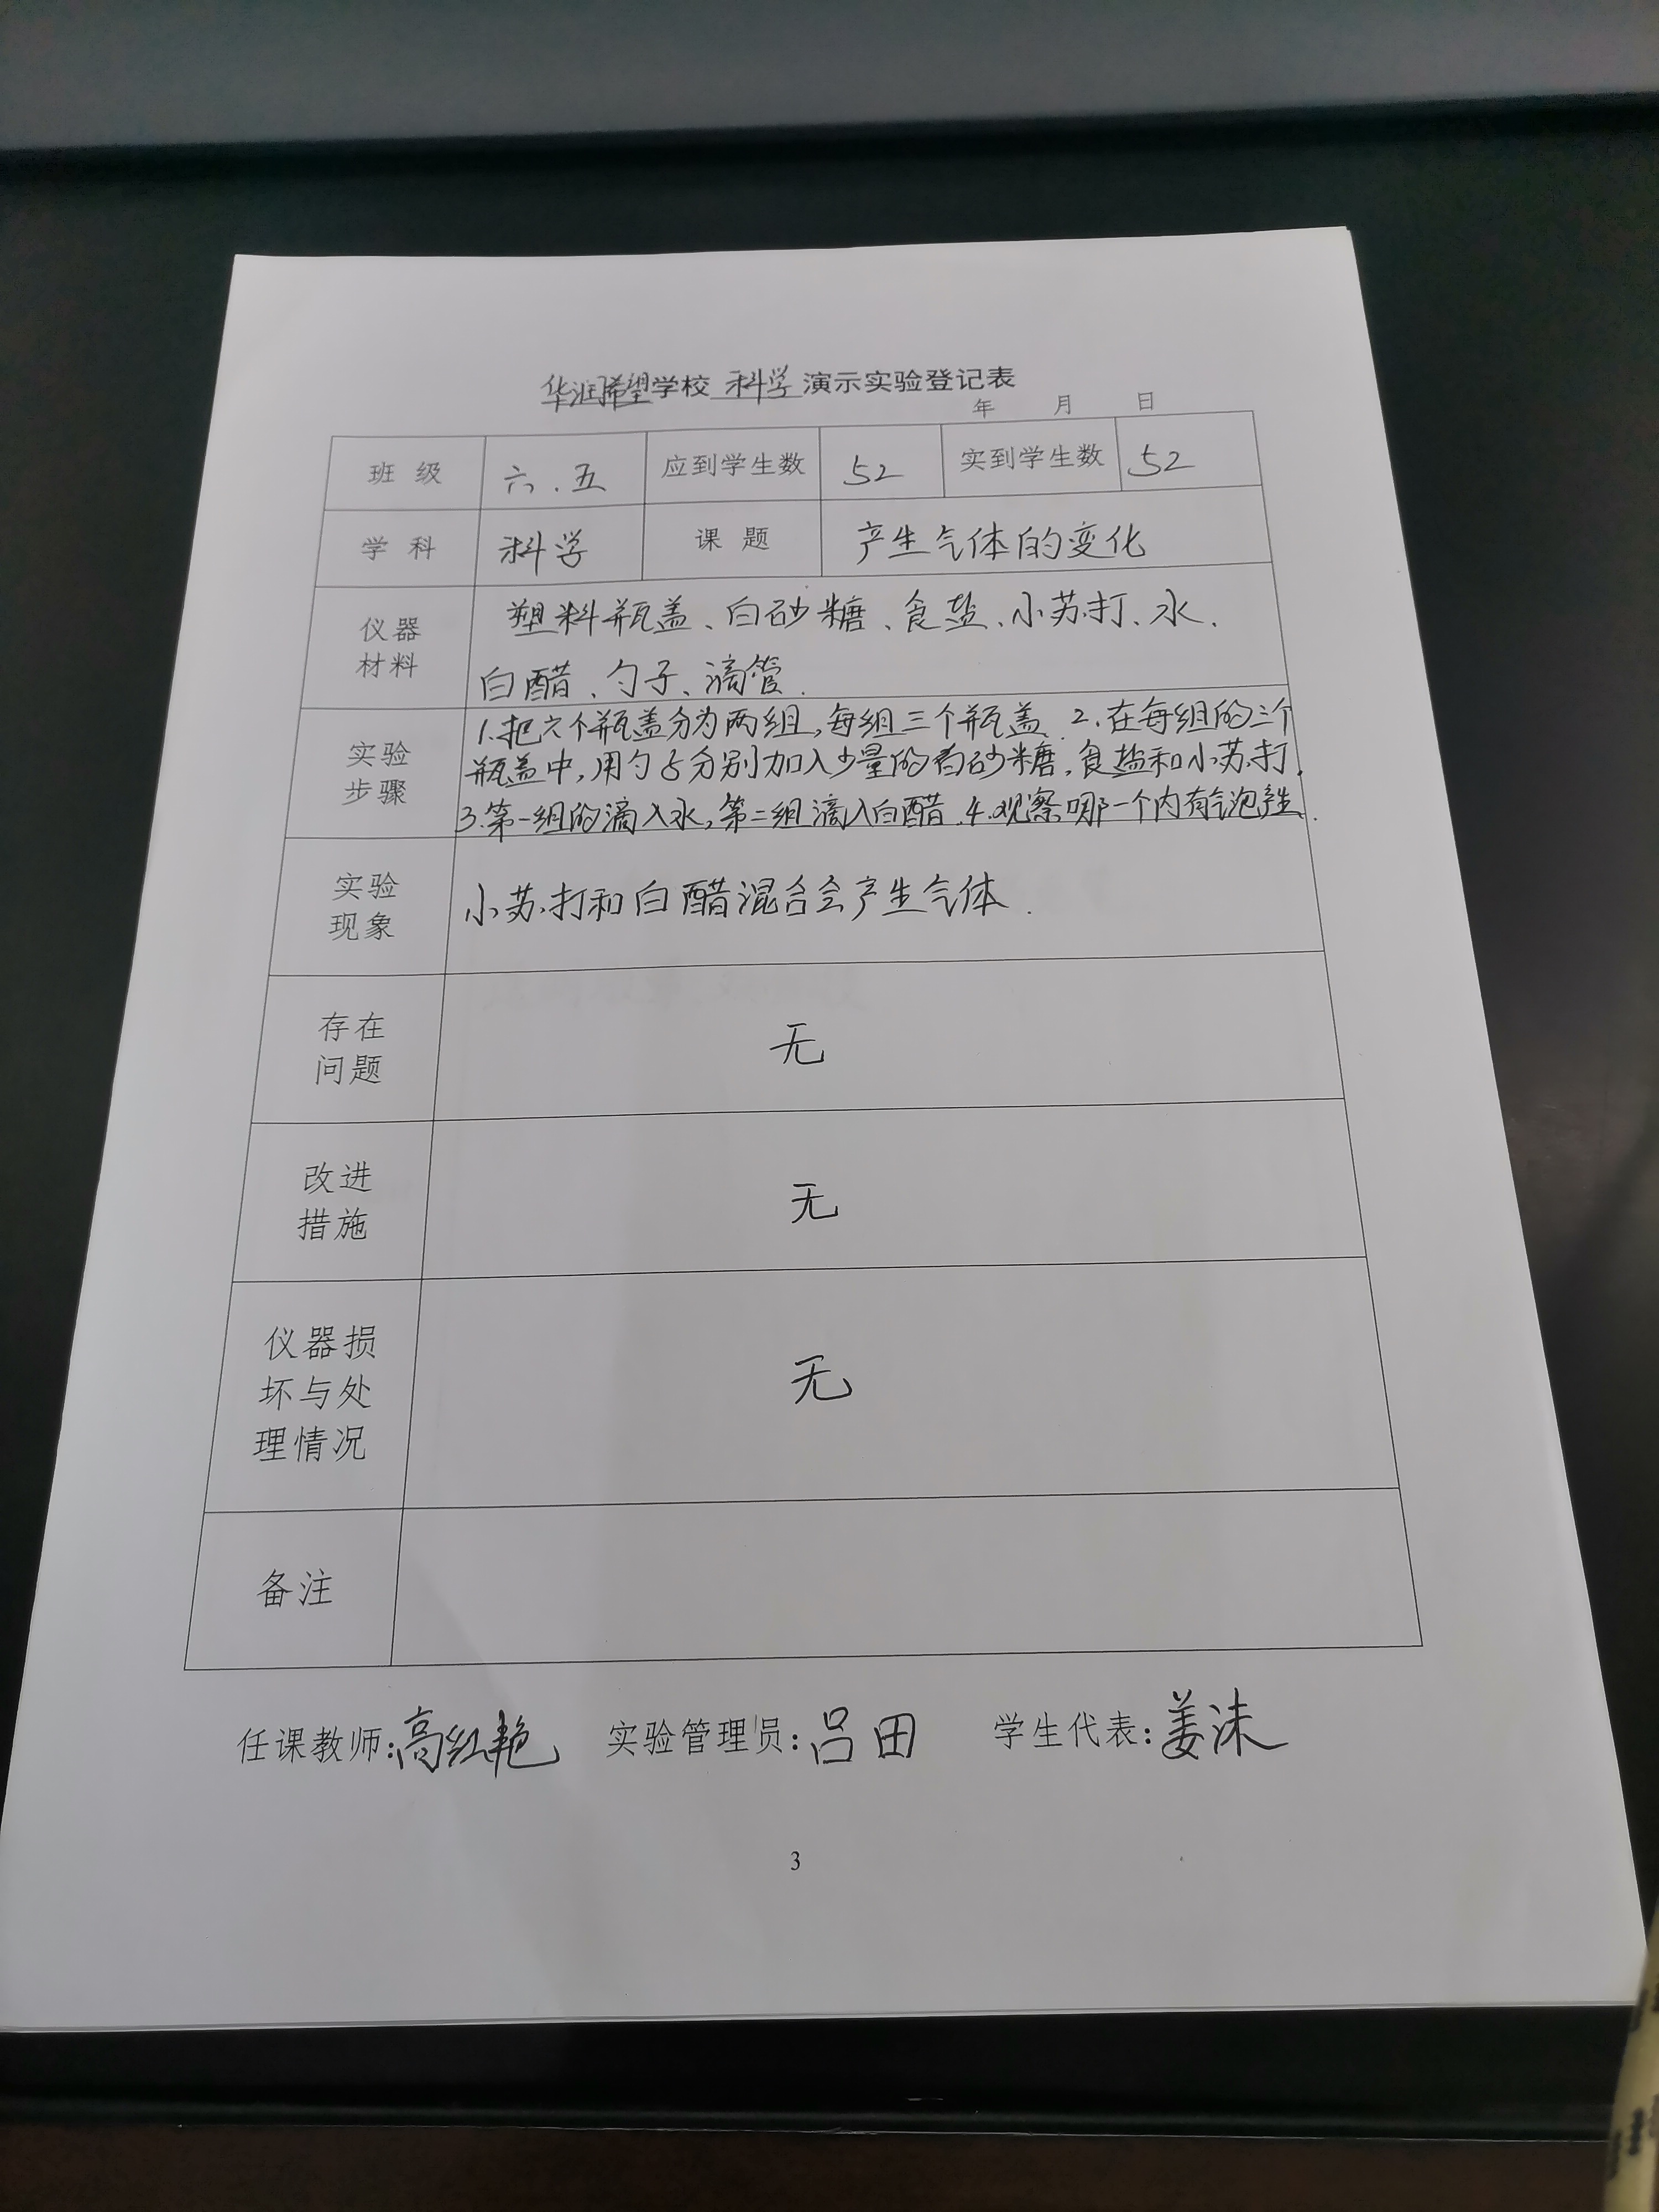 华润希望学校 科学 演示实验登记表
年 月 日
班 级 六.五 应到学生数 52 实到学生数 52
学 科 科学 课 题 产生气体的变化
仪器
材料
塑料瓶盖、白砂糖、食盐、小苏打、水、
白醋、勺子、滴管.
实验
步骤
1.把六个瓶盖分为两组,每组三个瓶盖. 2.在每组的三个
瓶盖中,用勺子分别加入少量的白砂糖,食盐和小苏打.
3.第一组的滴入水,第二组滴入白醋.4.观察哪一个内有气泡产生.
实验
现象
小苏打和白醋混合会产生气体.
存在
问题
无
改进
措施
无
仪器损
坏与处
理情况
无
备注
任课教师:高红艳 实验管理员:吕田 学生代表:姜沫
3